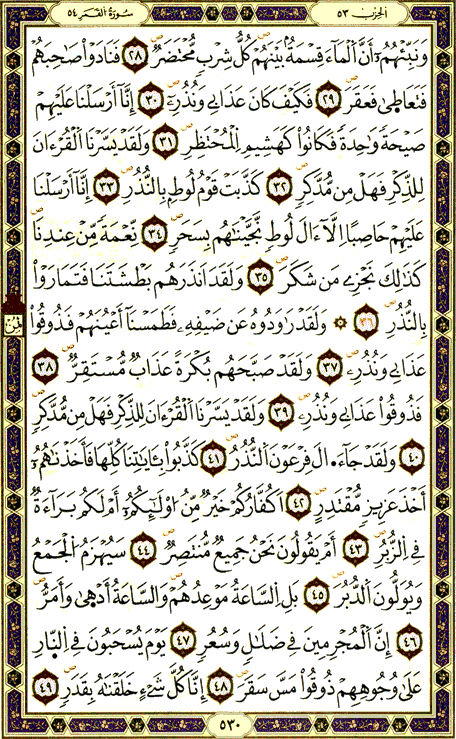 الحزب ٥٣
سورة القمر ٥٤
وَنَبِّئْهُمُۥٓ أَنَّ ٱلْمَآءَ قِسْمَةُۢ بَيْنَهُمْ كُلُّ شِرْبٍ مُّحْتَضَرٌ ٢٨ فَنَادَوْا۟ صَاحِبَهُمْ
فَتَعَاطَىٰ فَعَقَرَ ٢٩ فَكَيْفَ كَانَ عَذَابِى وَنُذُرِۦ ٣٠ إِنَّآ أَرْسَلْنَا عَلَيْهِمْ
صَيْحَةً وَٰحِدَةً فَكَانُوا۟ كَهَشِيمِ ٱلْمُحْتَظِرِ ٣١ وَلَقَدْ يَسَّرْنَا ٱلْقُرْءَانَ
لِلذِّكْرِ فَهَلْ مِن مُّدَّكِرٍ ٣٢ كَذَّبَتْ قَوْمُ لُوطٍۭ بِالنُّذُرِ ٣٣ إِنَّآ أَرْسَلْنَا
عَلَيْهِمْ حَاصِبًا إِلَّآ ءَالَ لُوطٍ نَّجَّيْنَٰهُم بِسَحَرٍ ٣٤ نِّعْمَةً مِّنْ عِندِنَا
كَذَٰلِكَ نَجْزِى مَن شَكَرَ ٣٥ وَلَقَدَ اَنذَرَهُم بَطْشَتَنَا فَتَمَارَوْا۟
بِالنُّذُرِ ٣٦ ۞ وَلَقَدْ رَٰوَدُوهُ عَن ضَيْفِهِۦ فَطَمَسْنَآ أَعْيُنَهُمْ فَذُوقُوا۟
ثمن
عَذَابِى وَنُذُرِۦ ٣٧ وَلَقَدْ صَبَّحَهُم بُكْرَةً عَذَابٌ مُّسْتَقِرٌّ ٣٨
فَذُوقُوا۟ عَذَابِى وَنُذُرِۦ ٣٩ وَلَقَدْ يَسَّرْنَا ٱلْقُرْءَانَ لِلذِّكْرِ فَهَلْ مِن مُّدَّكِرٍ
٤٠ وَلَقَدْ جَآءَ الَ فِرْعَوْنَ ٱلنُّذُرُ ٤١ كَذَّبُوا۟ بِـَٔايَٰتِنَا كُلِّهَا فَأَخَذْنَٰهُمُۥٓ
أَخْذَ عَزِيزٍ مُّقْتَدِرٍ ٤٢ اَكُفَّارُكُمْ خَيْرٌ مِّنُ ا۟وْلَٰٓئِكُمُۥٓ أَمْ لَكُم بَرَآءَةٌ
فِى ٱلزُّبُرِ ٤٣ أَمْ يَقُولُونَ نَحْنُ جَمِيعٌ مُّنتَصِرٌ ٤٤ سَيُهْزَمُ ٱلْجَمْعُ
وَيُوَلُّونَ ٱلدُّبُرَ ٤٥ بَلِ ٱلسَّاعَةُ مَوْعِدُهُمْ وَٱلسَّاعَةُ أَدْهَىٰ وَأَمَرُّ
٤٦ إِنَّ ٱلْمُجْرِمِينَ فِى ضَلَٰلٍ وَسُعُرٍ ٤٧ يَوْمَ يُسْحَبُونَ فِى ٱلنَّارِ
عَلَىٰ وُجُوهِهِمْ ذُوقُوا۟ مَسَّ سَقَرَ ٤٨ إِنَّا كُلَّ شَىْءٍ خَلَقْنَٰهُ بِقَدَرٍ ٤٩
٥٣٠